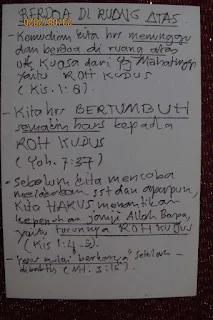 BERDOA DI RUANG ATAS
- Kemudian kita hrs menunggu
dan berdoa di ruang atas
utk kuasa dari Yg Mahatinggi
yaitu ROH KUDUS
(Kis. 1:8).
- Kita hrs BERTUMBUH
kepada
ROH KUDUS
(Yoh. 7:37)
- Sebelum kita mencoba
melakukan sst dan apapun,
kita HARUS menantikan
kepenuhan janji Allah Bapa,
yaitu turunnya ROH KUDUS
(Kis 1:4-5).
- "Yesus mulai berkarya" setelah
dibaptis (Mt. 3:16).